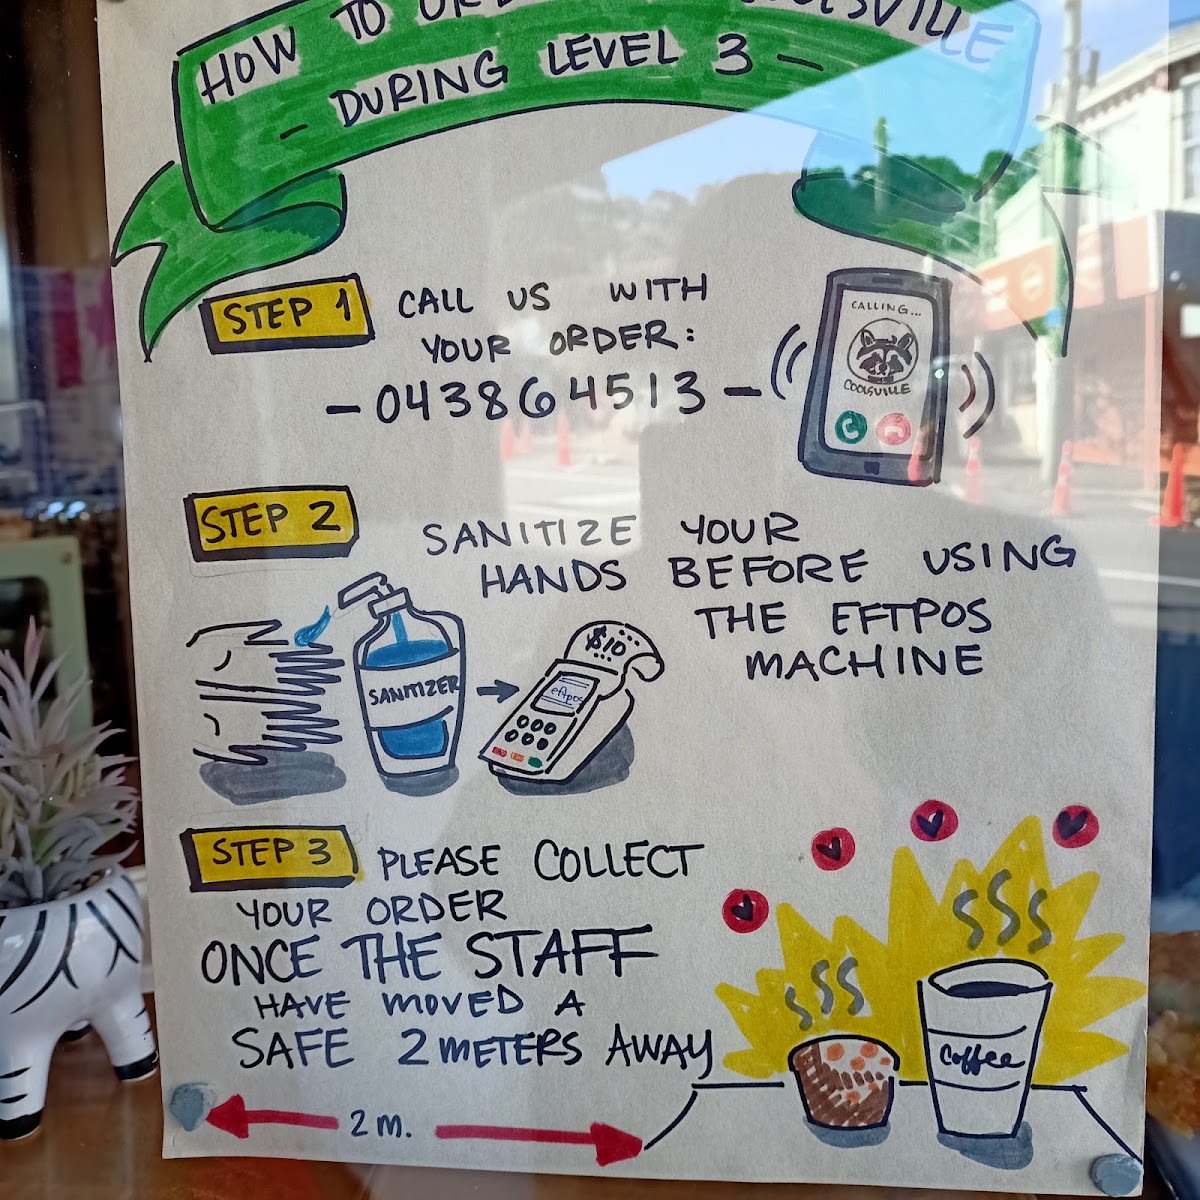 HOW TO
COOLSVILLE
- DURING LEVEL 3 -
STEP 1
CALL US WITH
YOUR ORDER:
- 043864513 -
CALLING...
COOLSVILLE
STEP 2
SANITIZE YOUR
HANDS BEFORE USING
THE EFTPOS
MACHINE
SANITIZER
$10
eftpos
STEP 3
PLEASE COLLECT
YOUR ORDER
ONCE THE STAFF
HAVE MOVED A
SAFE 2 METERS AWAY
Coffee
2 m.